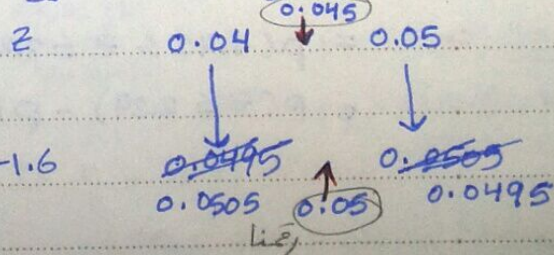 0.045
z 0.04 0.05
-1.6 0.0495 0.0505
0.0505 0.05 0.0495